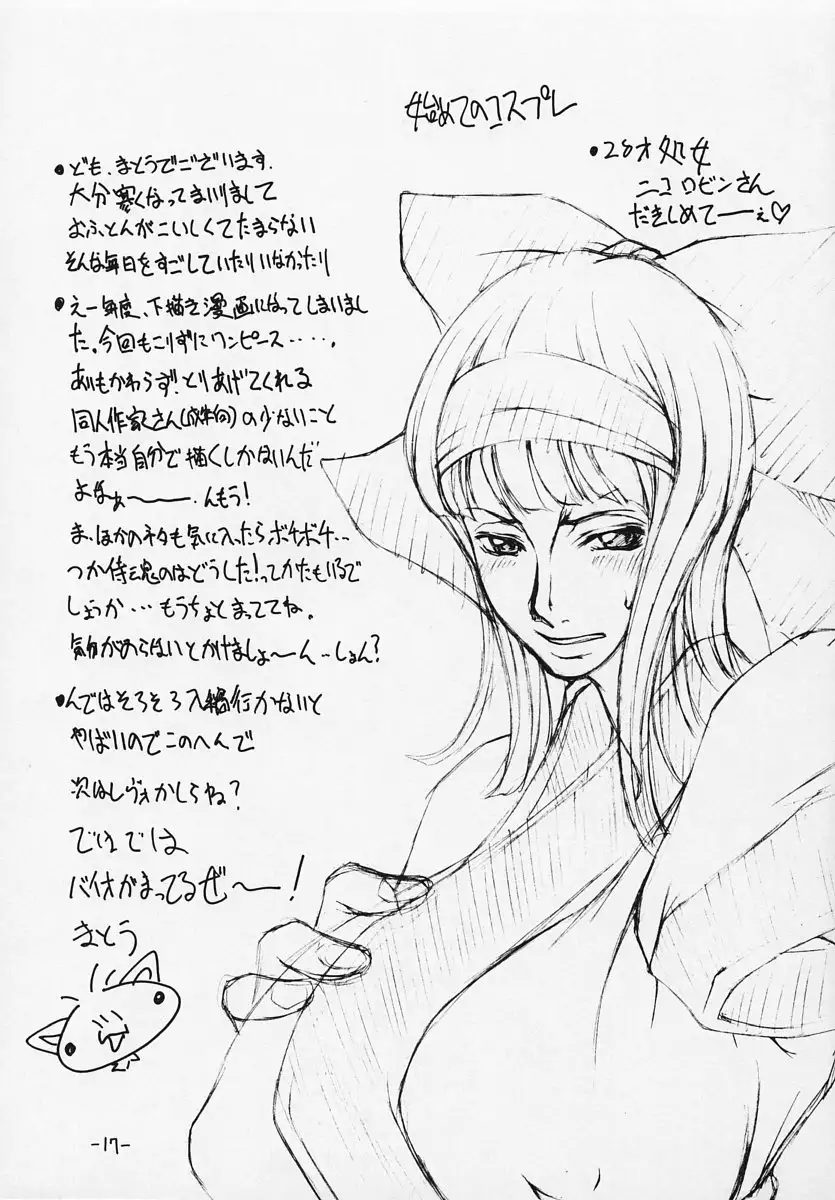 始めてのコスプレ
・28才処女
ニコロビンさん
だきしめてーーぇ♡
・ども、まとうでございます.
大分寒くなってまいりまして
おふとんがこいしくてたまらない
そんな毎日をすごしていたりいなかったり
・えー毎度、下描き漫画になってしまいまし
た。今回もこりずにワンピース‥‥.
あいもかわらず!とりあげてくれる
同人作家さん(成年向)の少ないこと
もう本当自分で描くしかないんだ
よなぁ〜〜.んもう!
ま、ほかのネタも気に入ったらボチボチ‥
つか侍魂のはどうした!ってかたもいるで
しょうか…もうちょとまっててね。
気分がのらないとかけましょ〜ん‥しょん?
・んではそろそろ入稿行かないと
やばいのでこのへんで
次はレヴォかしらね?
でわでは
バイオがまってるぜ〜!
まとう
-17-